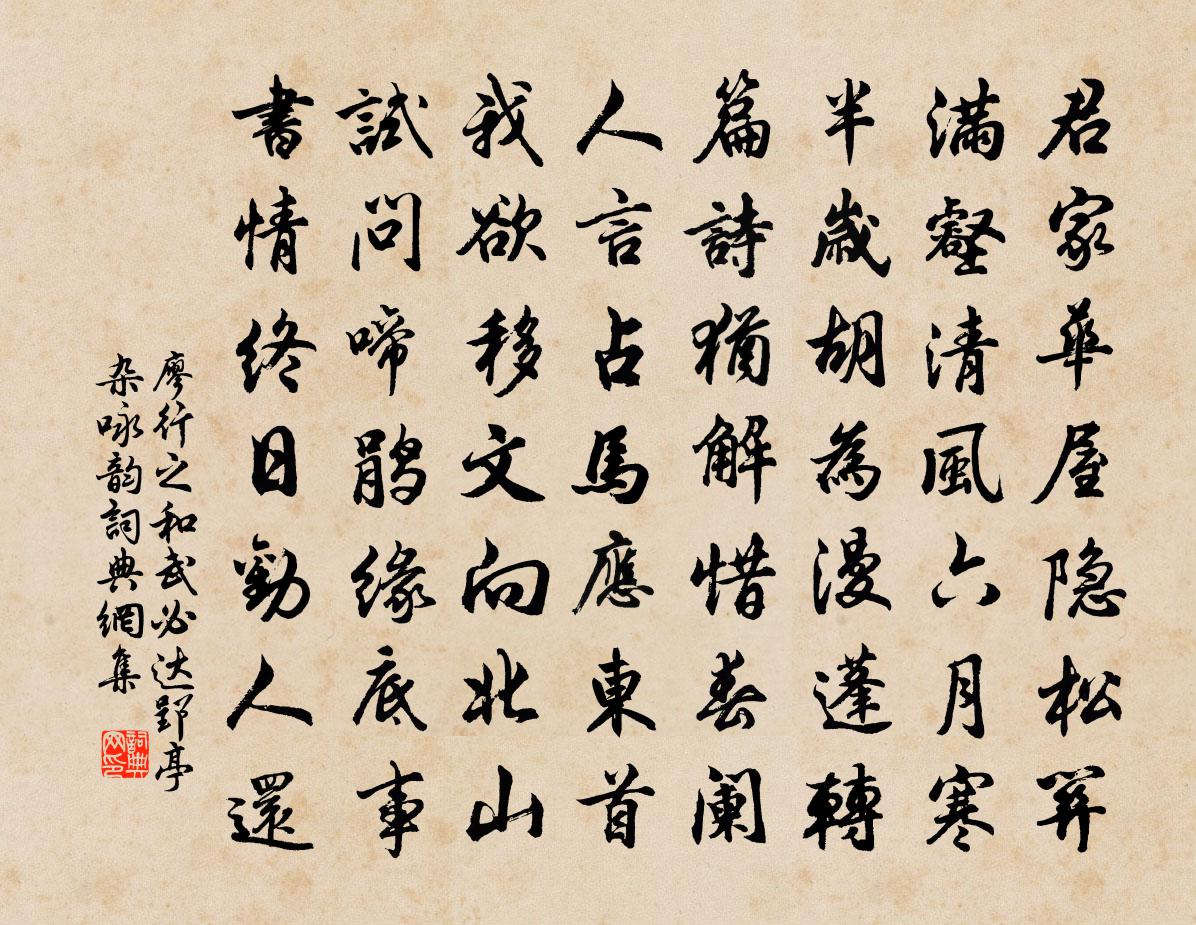 君家華屋隐松关
滿壑清風六月寒
半歲胡為漫蓬轉
篇詩猶解惜春阑
人言占馬應東首
我欲移文向北山
試問啼鵑緣底事
書情終日勸人還
廖行之和武必达郢亭
杂咏韵詞典網集
詞典网印